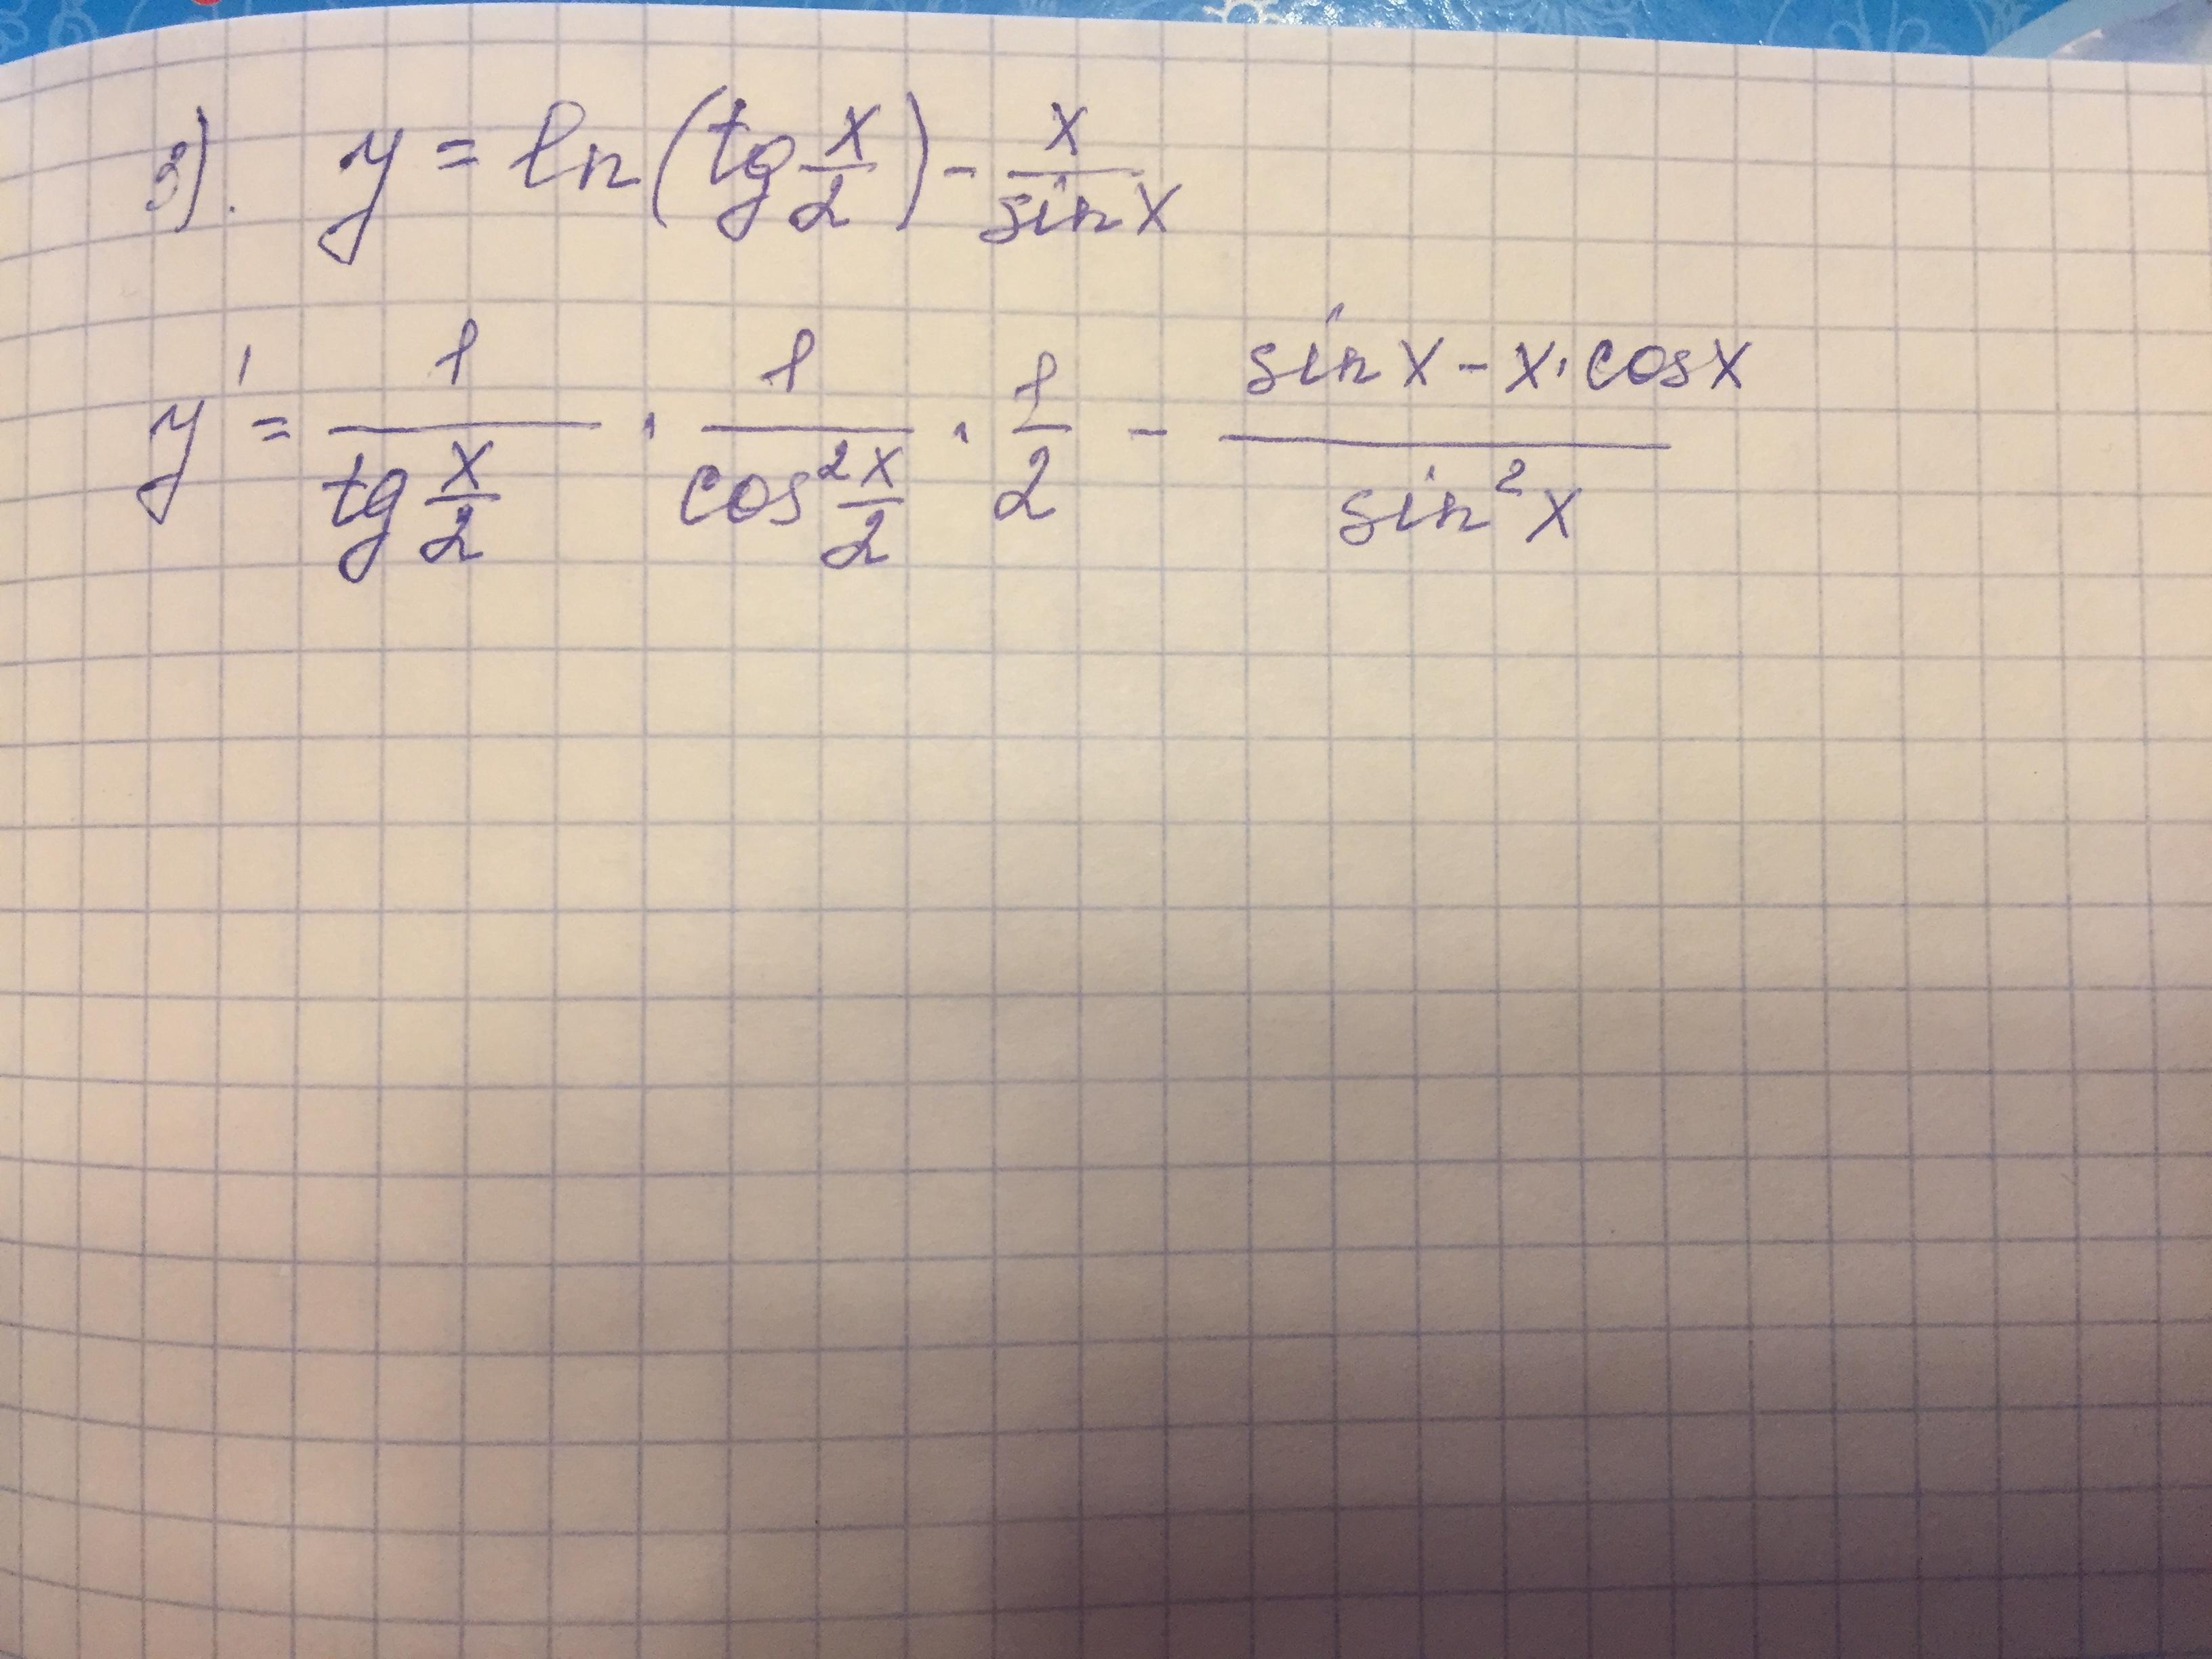 3). y = ln(tg x/2) - x/sin x
y' = 1/(tg x/2) · 1/(cos² x/2) · 1/2 - (sin x - x · cos x)/(sin² x)